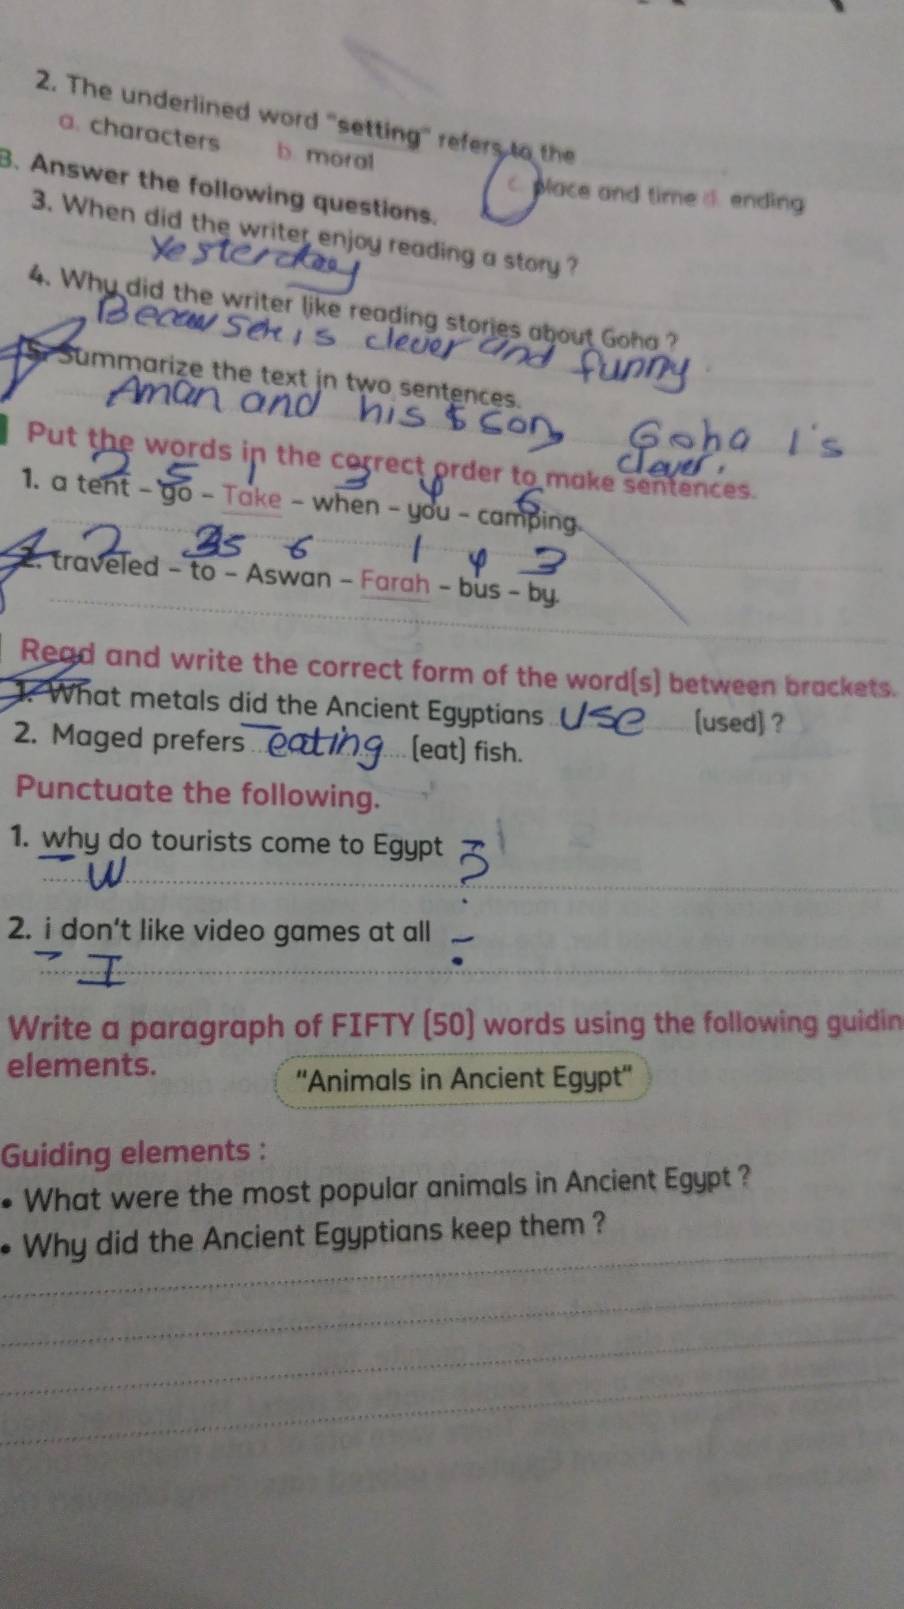 2. The underlined word "setting" refers to the
a. characters b. moral c. place and time d. ending
B. Answer the following questions.
3. When did the writer enjoy reading a story ?
Yesterday
4. Why did the writer like reading stories about Goha ?
is clever and funny
5. Summarize the text in two sentences.
Aman and his son Goha is
clever.
Put the words in the correct order to make sentences.
2 5 1 3 4 6
1. a tent - go - Take - when - you - camping.
2 5 6 1 4 3
2. traveled - to - Aswan - Farah - bus - by.
Read and write the correct form of the word(s) between brackets.
1. What metals did the Ancient Egyptians use (used) ?
2. Maged prefers eating (eat) fish.
Punctuate the following.
1. why do tourists come to Egypt ?
W
2. i don't like video games at all .
I
Write a paragraph of FIFTY (50) words using the following guidin
elements.
"Animals in Ancient Egypt"
Guiding elements :
• What were the most popular animals in Ancient Egypt ?
• Why did the Ancient Egyptians keep them ?